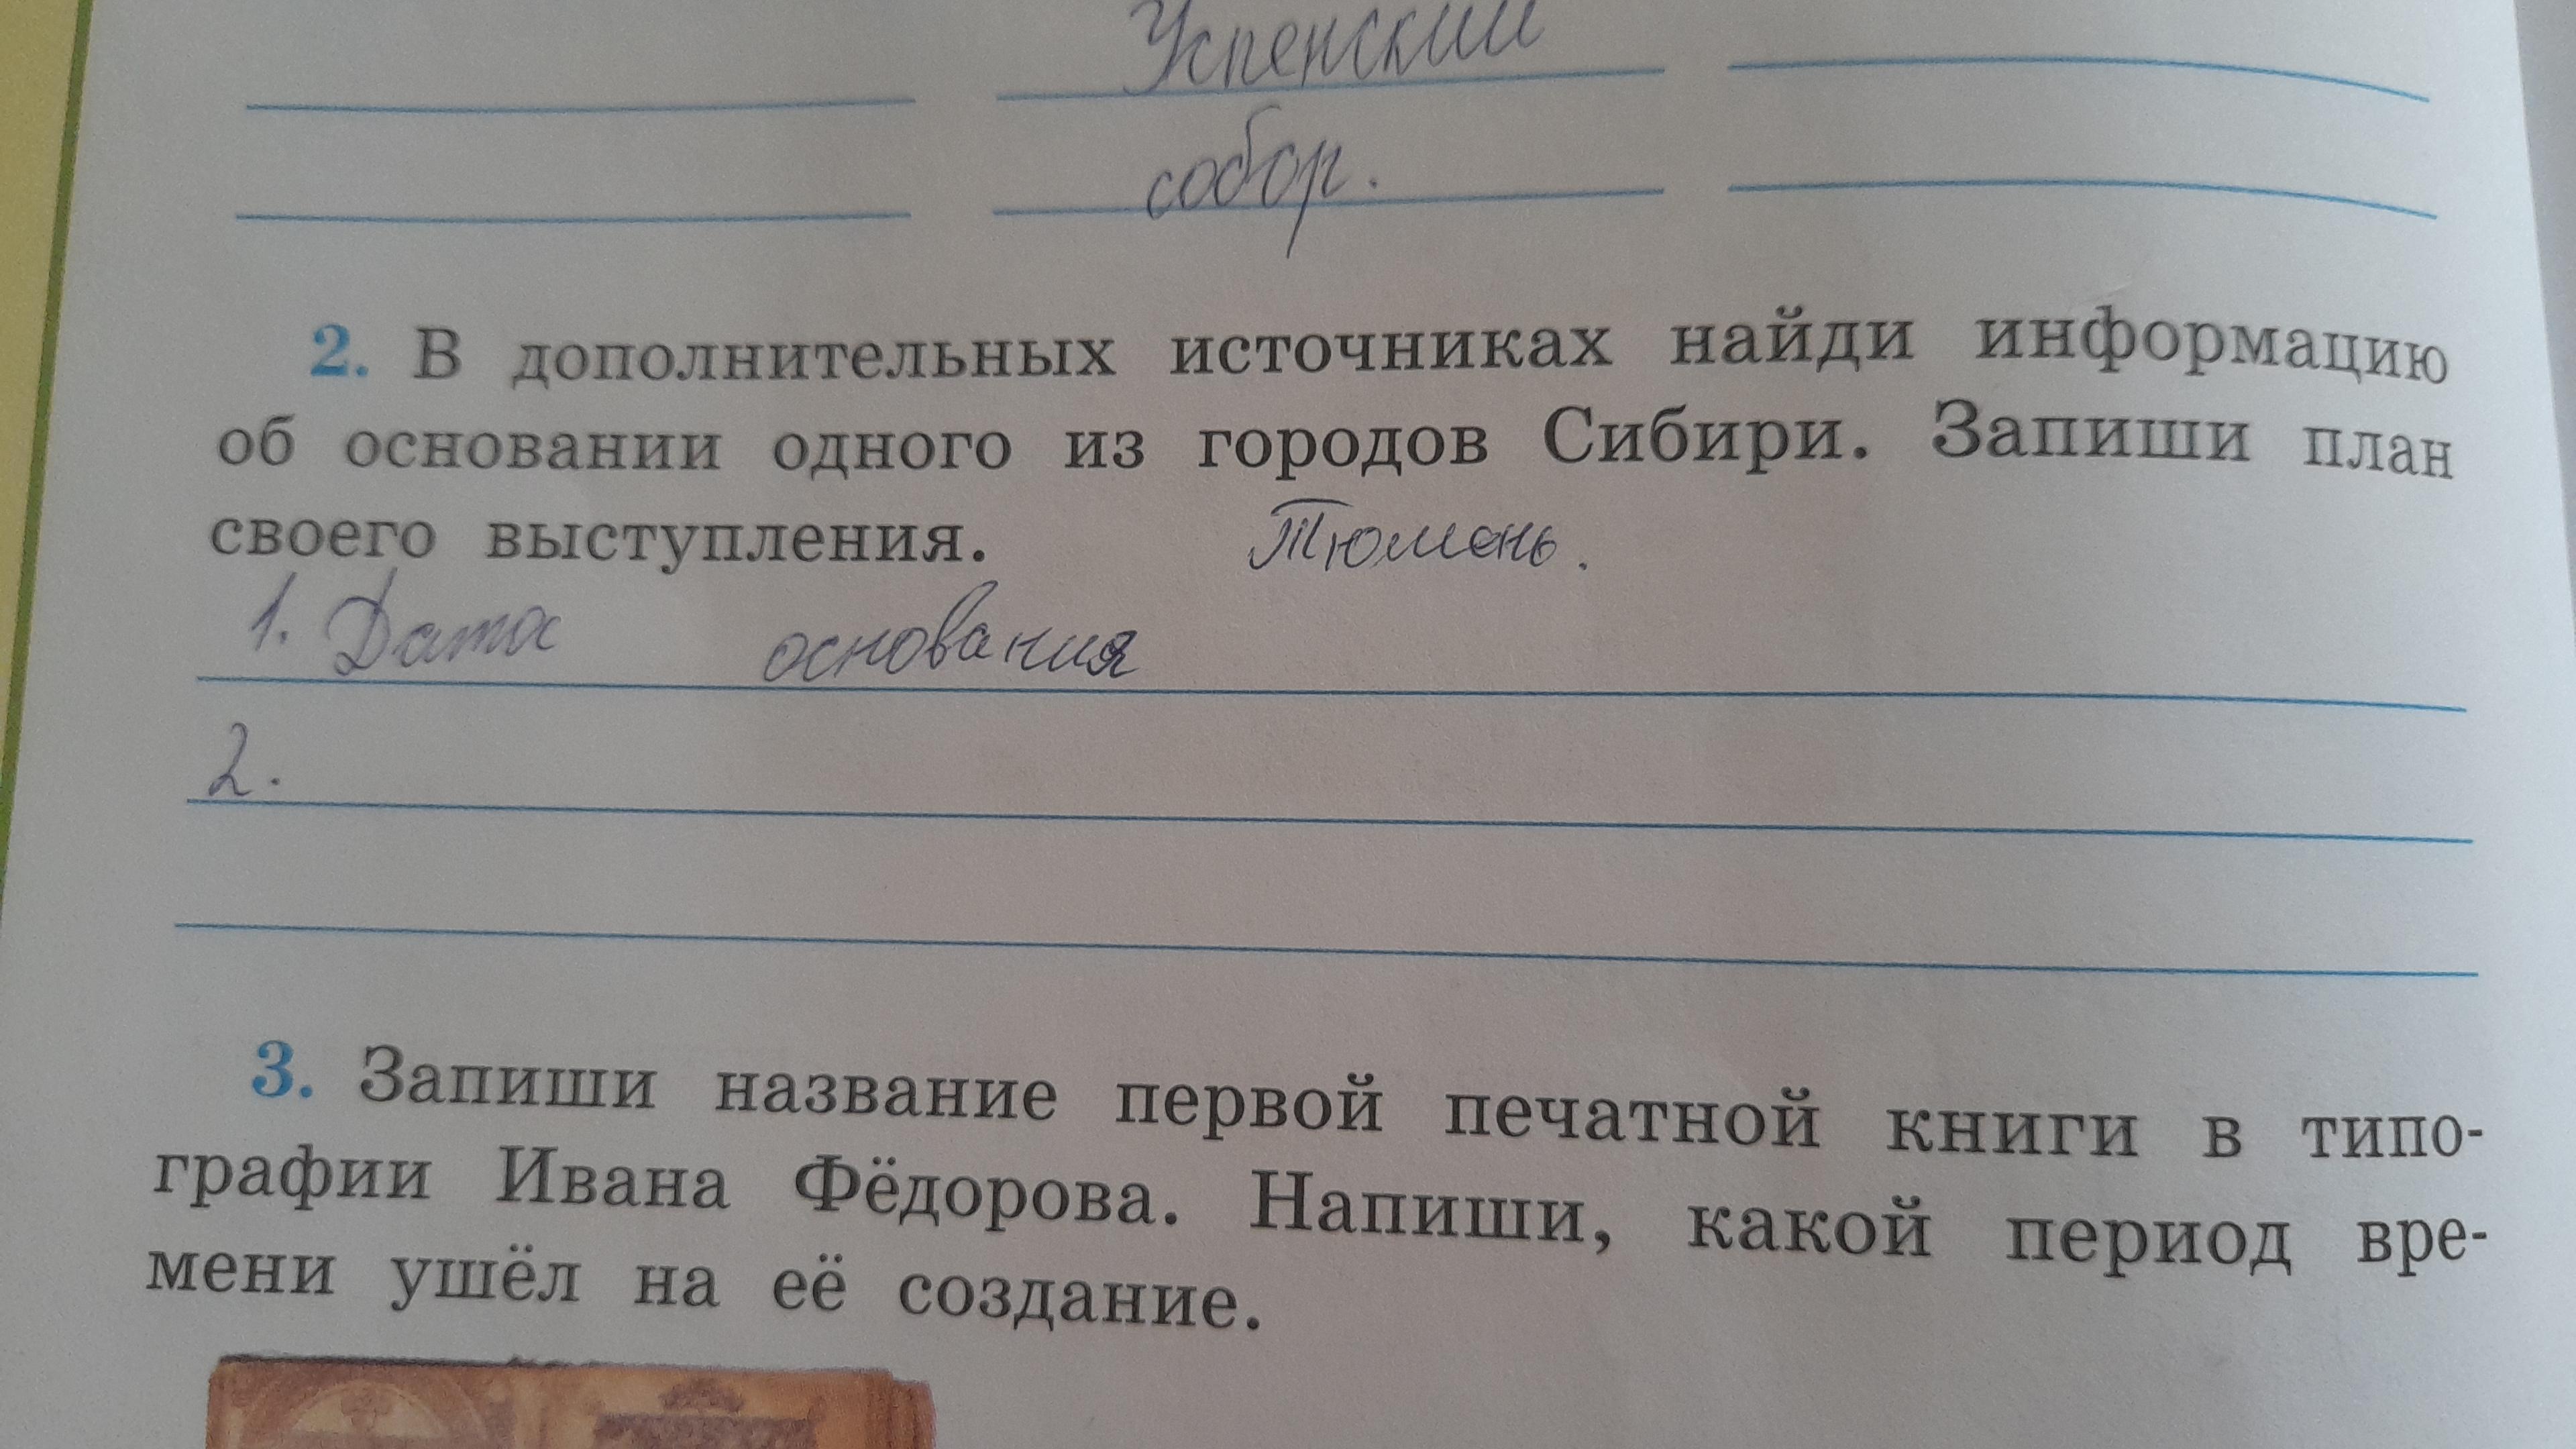 Успенский
собор.
2. В дополнительных источниках найди информацию
об основании одного из городов Сибири. Запиши план
своего выступления. Тюмень.
1. Дата основания
2.
3. Запиши название первой печатной книги в типо-
графии Ивана Фёдорова. Напиши, какой период вре-
мени ушёл на её создание.